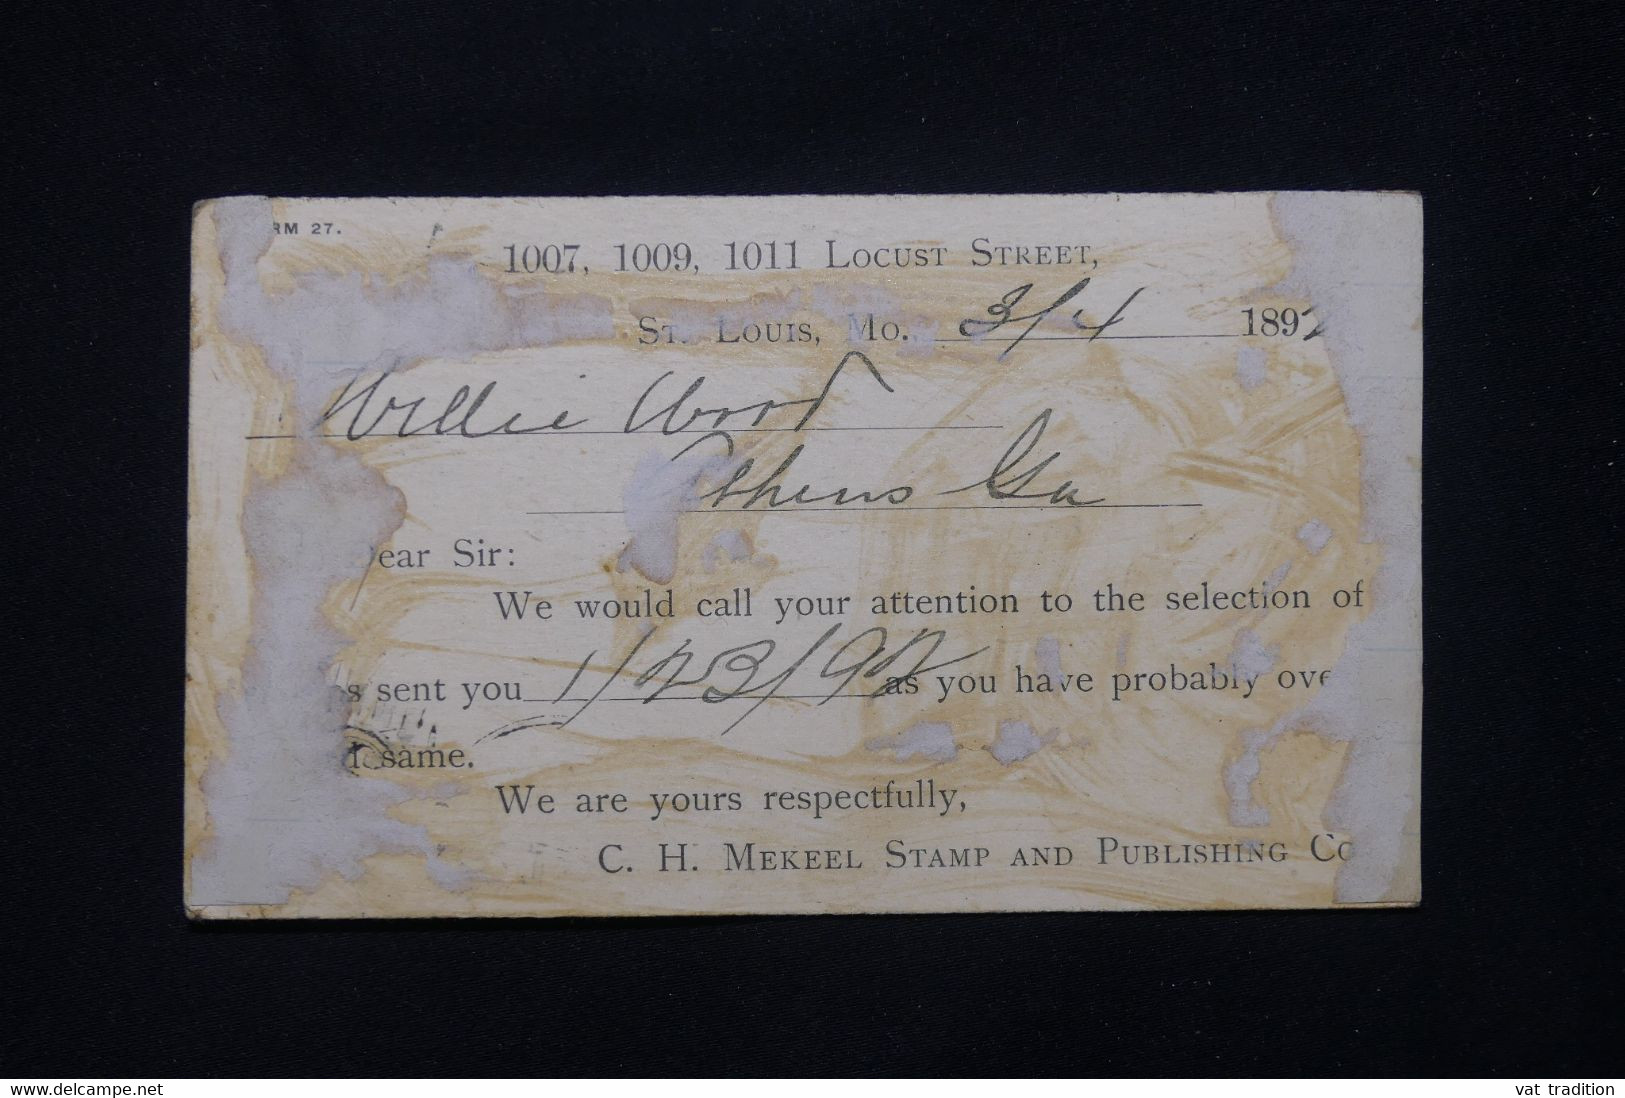 RM 27.
1007, 1009, 1011 Locust Street,
St. Louis, Mo. 3/4 1892
Willie Wood
Athens Ga
Dear Sir:
We would call your attention to the selection of
s sent you 1/23/92 as you have probably ove
same.
We are yours respectfully,
C. H. Mekeel Stamp and Publishing Co
www.delcampe.net
vat tradition